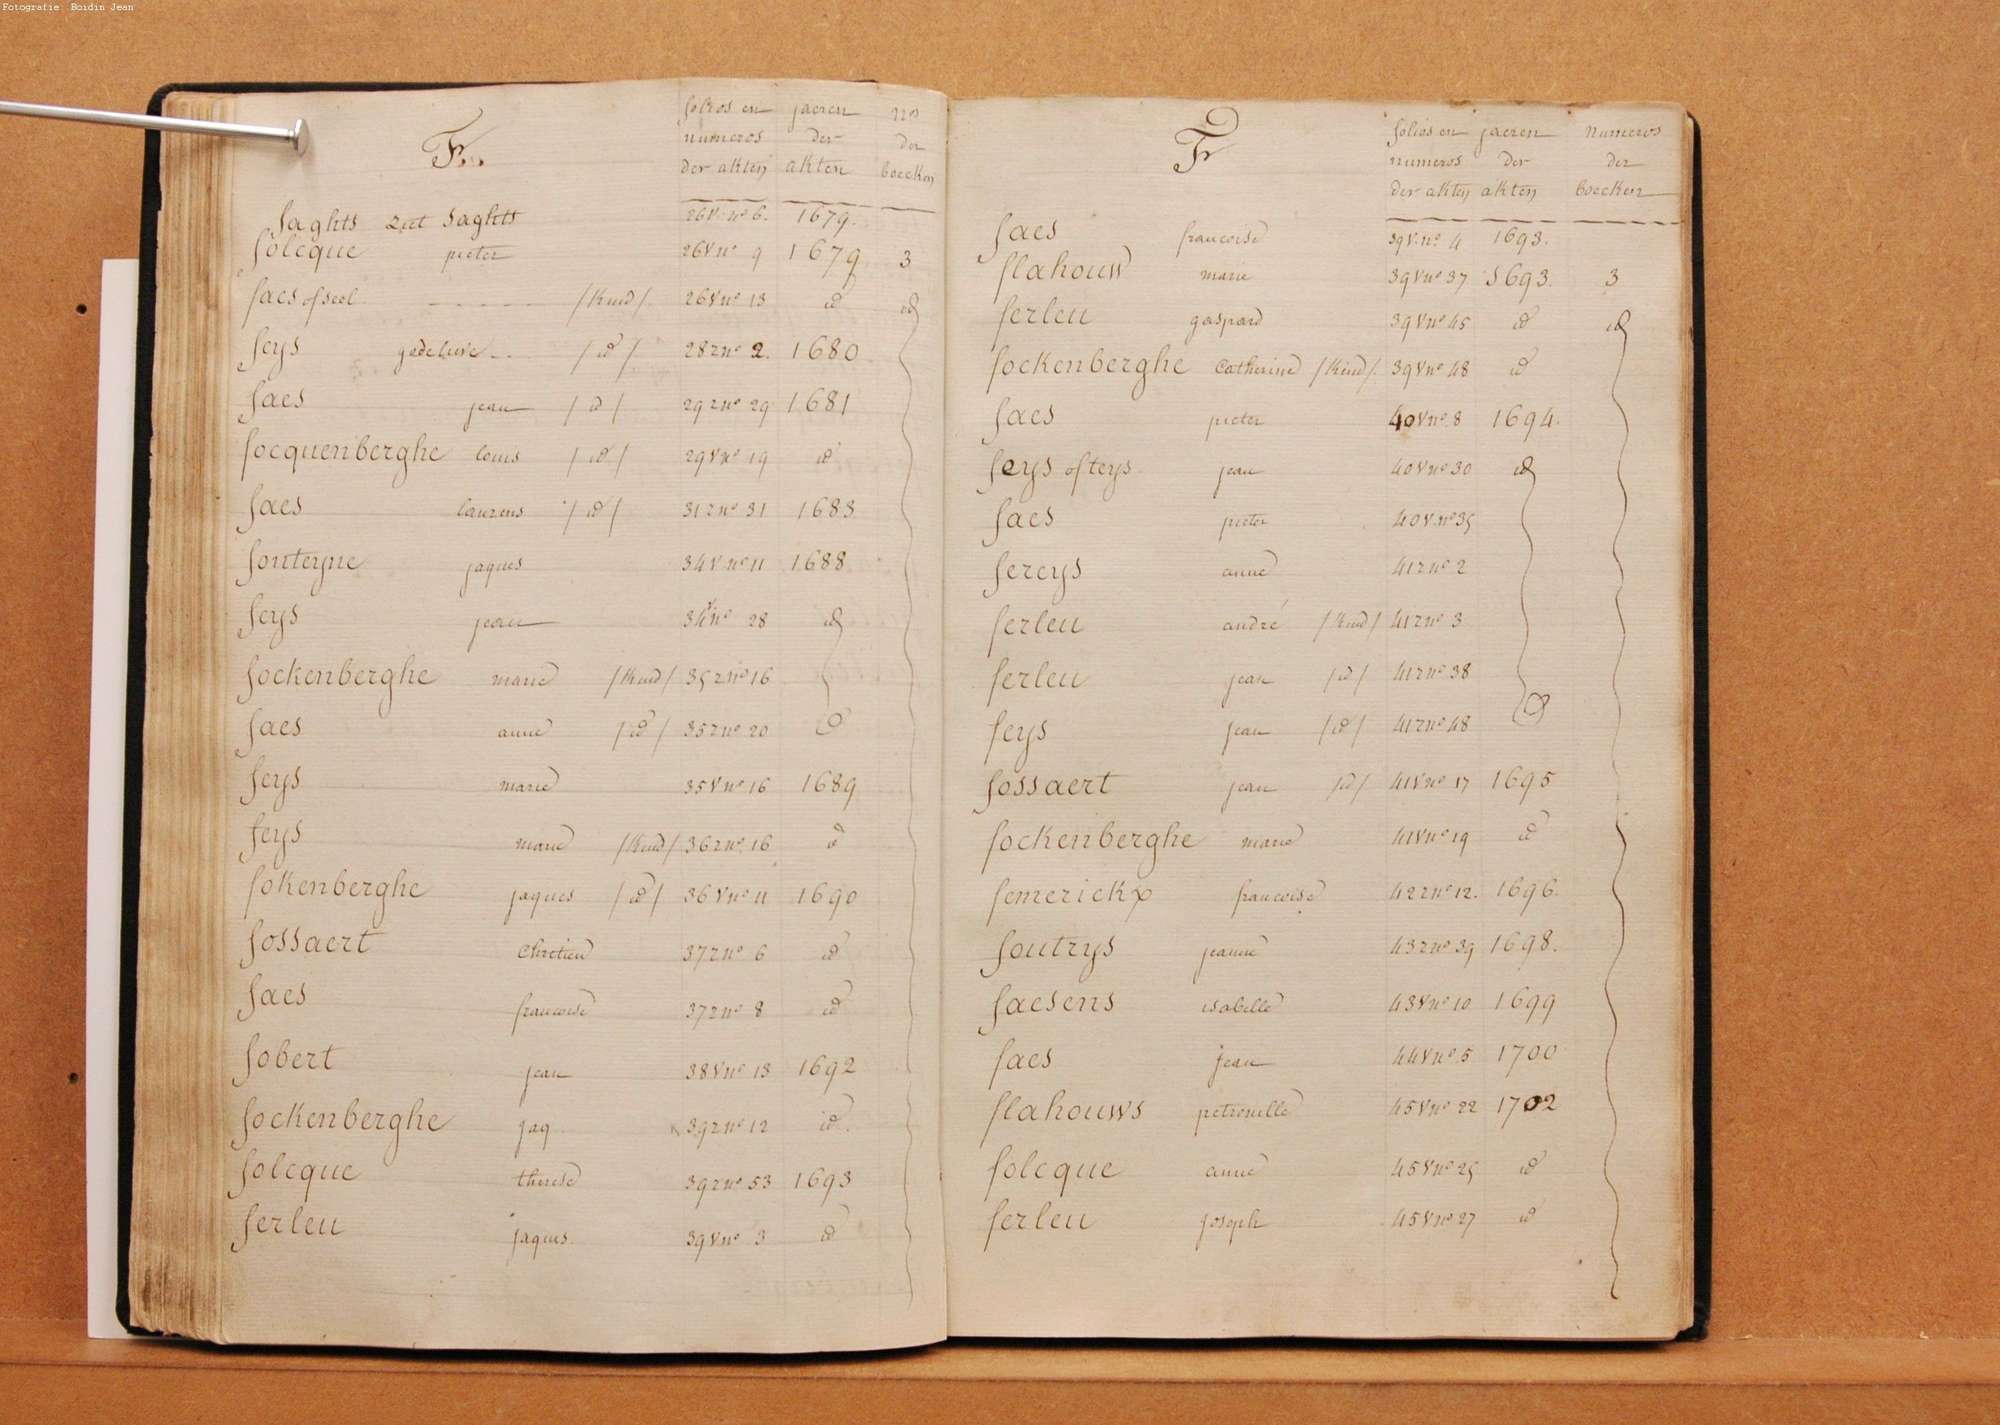 Fotografie: Boidin Jean
F.
folios en jaeren nos
numeros der der
der akten akten boecken
faghts ziet Saghts 26V no 6. 1679.
folcque pieter 26V no 9 1679 3
faes of seel - - - - - /kind/ 26V no 13 id id
feys godelieve - - /id/ 28r no 2. 1680
faes jean /id/ 29r no 29 1681
focquenberghe louis /id/ 29V no 19 id
faes laurens /id/ 31r no 31 1683
fonteyne jaques 34V no 11 1688
feys jean 34V no 28 id
fockenberghe marie /kind/ 35r no 16
faes anne /id/ 35r no 20
feys marie 35V no 16 1689
feys marie /kind/ 36r no 16 id
fokenberghe jaques /id/ 36V no 11 1690
fossaert Chretien 37r no 6 id
faes francoise 37r no 8 id
fobert jean 38V no 13 1692
fockenberghe jaq 39r no 12 id.
folcque therese 39r no 53 1693
ferleu jaques 39V no 3 id
F
folios en jaeren numeros
numeros der der
der akten akten boecken
faes francoise 39V no 4 1693.
flahouw marie 39V no 37 1693. 3
ferleu gaspard 39V no 45 id id
fockenberghe Catherine /kind/. 39V no 48 id
faes pieter 40V no 8 1694.
feys of teys jean 40V no 30 id
faes pieter 40V no 35
fereys anne 41r no 2
ferleu andré /kind/ 41r no 3
ferleu jean /id/ 41r no 38
feys jean /id/ 41r no 48
fossaert jean /id/ 41V no 17 1695
fockenberghe marie 41V no 19 id
femerickx francoise 42r no 12. 1696.
foutrys jeanne 43r no 39 1698.
faesens isabelle 43V no 10 1699
faes jean 44V no 5 1700
flahouws petronille 45V no 22 1702
folcque anne 45V no 25 id
ferleu joseph 45V no 27 id